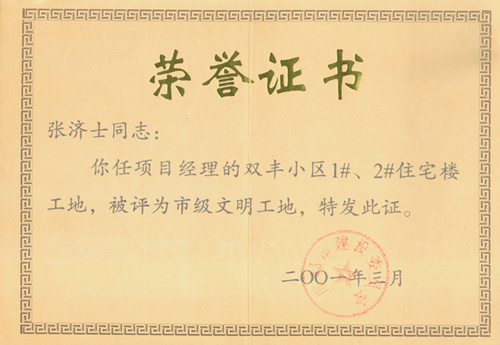 荣誉证书
张济士同志：
你任项目经理的双丰小区1#、2#住宅楼
工地，被评为市级文明工地，特发此证。
二〇〇一年三月